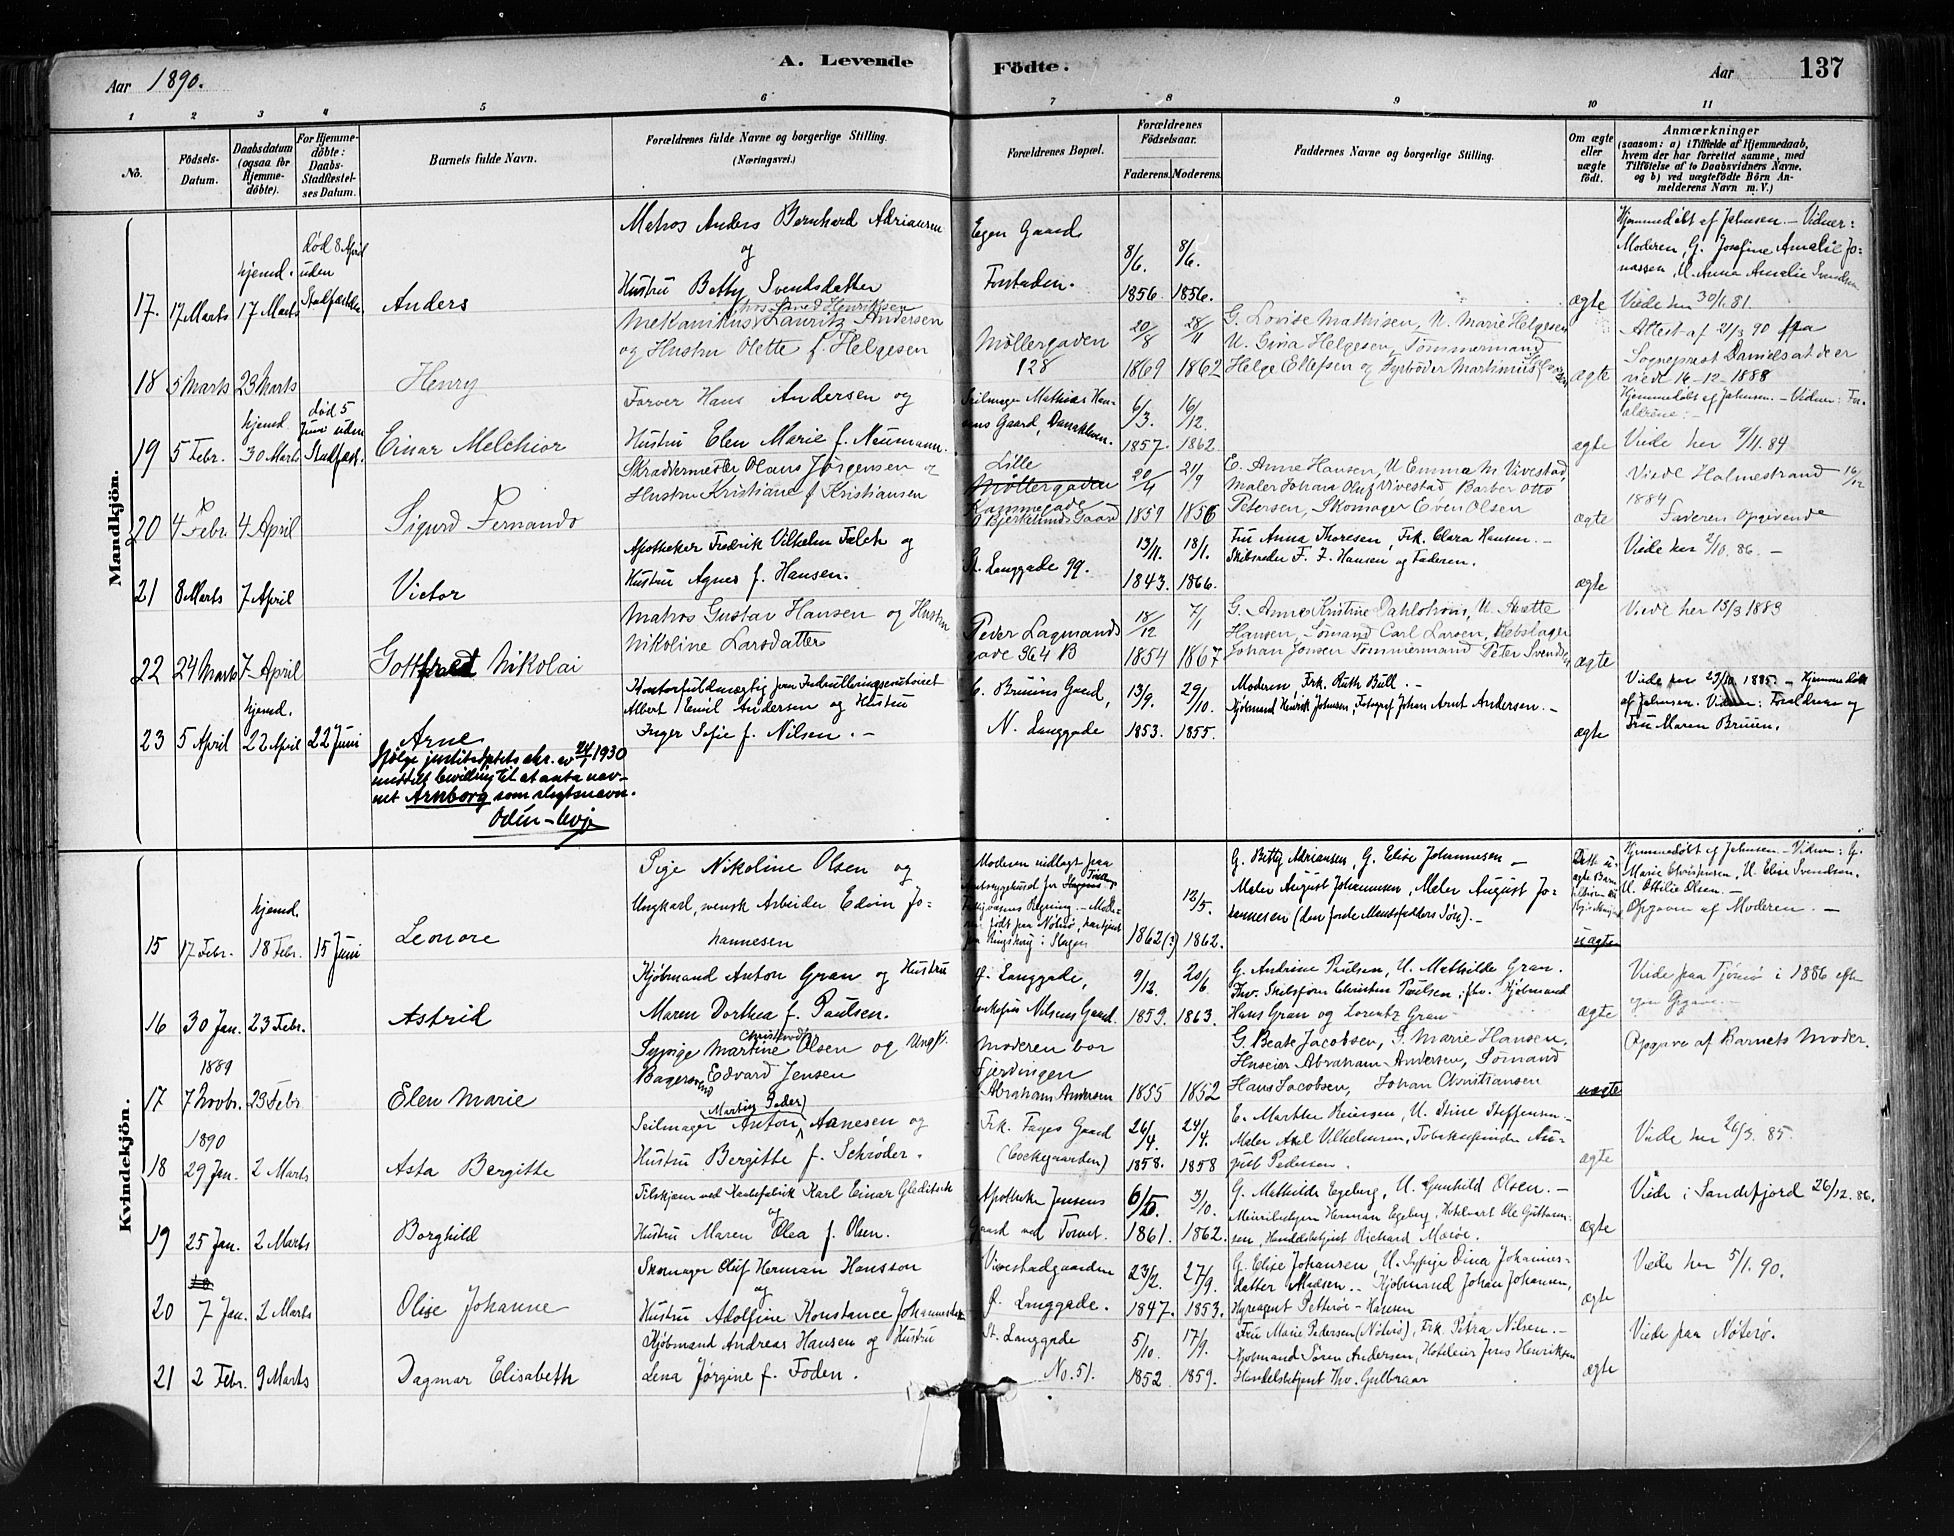 Aar 1890.
A. Levende
Födte.
Aar
137
1 2 3 4 5 6 7 8 9 10 11
No.
Födsels-Datum.
Daabsdatum (ogsaa för Hjemmedöbte).
For Hjemmedöbte: Daabs-Stadfæstelses Datum.
Barnets fulde Navn.
Forældrenes fulde Navne og borgerlige Stilling. (Næringsvei.)
Forældrenes Bopæl.
Forældrenes Födselsaar.
Faderens. Moderens.
Faddernes Navne og borgerlige Stilling.
Om ægte eller uægte födt.
Anmærkninger
(saasom: a) i Tilfælde af Hjemmedaab, hvem der har forrettet samme, med Tilföielse af to Daabsvidners Navne, og b) ved uægtefödte Börn Anmelderens Navn m. V.)
Mandkjön.
17. 17 Marts hjemd. 17 Marts död 8 April uden Stadfæstelse Anders
Matros Anders Bernhard Adriansen
og
Hustru Betty Svendsdatter
Egen Gaard
Forstaden.
8/6. 1856. 8/6. 1856.
ægte
Hjemmedöbt af Jahnsen. – Vidner:
Moderen, G. Josefine Amalie Jonassen, U. Anna Amelie Svendsen
Viede her 30/1 81.
18 5 Marts 23 Marts Henry
Mekanikus Lauritz Andersen
og Hustru Olette f. Helgesen
Möllergaden
128
20/8 1869 28/11 1862
G. Lovise Mathisen, U. Marie Helgesen
U. Gina Helgesen, Tömmermand
Helge Ellefsen og Fyrböder Martinius
ægte
Attest af 21/3 90 fra
Sogneprest Daniels at de er
viede 16-12-1888
19 5 Febr. hjemd 30 Marts död 5 Juni uden Stadfæst. Einar Melchior
Farver Hans Andersen og
Hustru Elen Marie f. Neumann.
Seilmager Mathias Hansens Gaard,
6/3. 1857. 16/12. 1862.
ægte
Hjemmedöbt af Jahnsen. – Vidner: Forældrene: –
Viede her 9/11. 84
20 4 Febr. 4 April Sigurd Fernando
Skræddermester Olaus Jörgensen og
Hustru Kristiane f. Kristiansen
Lille
Möllergaden
20/4 1859 21/9 1856
E. Anne Hansen, U Emma M Vivestad,
Maler Johan Oluf Vivestad Barber Otto
Petersen, Skomager Even Olsen
ægte
Viede Holmestrand 16/12
1884
Faderen Opgivende
21 8 Marts 7 April Victor
Apotheker Fredrik Vilhelm Falch og
Hustru Agnes f. Hansen.
St. Langgade 99.
13/11. 1843. 18/1. 1866.
Fru Anna Thoresen, Frk. Clara Hansen. –
Skibsreder F. F. Hansen og Faderen.
ægte
Viede her 2/10. 86. –
22 24 Marts 7 April Gottfred Nikolai
Matros Gustav Hansen og Hustru
Nikoline Larsdatter
Peder Lagmands
gade 364 B
18/12 1854 7/1 1867
G. Anne Kristine U. Anette
Hansen, Sömand Carl Larsen, Rebslager
Johan Jonsen Tömmermand Peter Svendsen
ægte
Viede her 13/3 1883
23 5 April hjemd. 22 April 22 Juni Arne
Ifölge justitsdptets skr. av 24/1 1930
meddelt bevilling til at anta navnet Arnborg som slegtsnavn.
Kontorfuldmægtig paa Indrulleringskontoret
Albert Emil Andersen og Hustru
Inger Sofie f. Nilsen. –
C. Bruuns Gaard,
N. Langgade
13/9. 1853. 29/10. 1855.
Moderen, Frk. Ruth Bull. –
Kjöbmand Henrik Johnsen, Fotograf Johan Arnt Andersen. –
ægte
Viede her 23/10 1885. – Hjemmedöbt
af Jahnsen. Vidner: Forældrene og
Fru Maren Bruun.
Kvindekjön.
15 17 Febr. hjemd. 18 Febr. 15 Juni Leonore
Pige Nikoline Olsen og
Ungkarl, svensk Arbeider Edvin Johannesen
1862(?) 12/5. 1862.
G. Betty Adriansen, G. Elise Johannesen –
Maler August Johannesen, Maler August Johannesen (den forste Mandsfadders Sön). –
uægte
Hjemmedöbt af Jahnsen. – Vidner: G.
Marie Christensen, U. Elise Svendsen.
U. Ottilie Olsen. –
Opgaven af Moderen. –
16 30 Jan. 23 Febr. Astrid
Kjöbmand Anton Gran og Hustru
Maren Dorthea f. Paulsen.
Ö. Langgade,
Nilsens Gaard
9/12. 1859. 20/6 1863.
G. Andrine Paulsen, U. Mathilde Gran.
Thv. Skibsförer Christen Paulsen, fhv. Kjöbmand
Hans Gran og Lorentz Gran
ægte
Viede paa Tjömö i 1886 efter
egen Opgave. –
17 1889 7 Novbr. 23 Febr. Elen Marie
Sypige Martine Olsen og Ungk.
Bagersvend Edvard Jensen
Moderen bor
Fjerdingen
Abraham Andersen
1855 1852
G. Beate Jacobsen, G. Marie Hansen,
Huseier Abraham Andersen, Sömand
Hans Jacobsen, Johan Christiansen
uægte
Opgave af Barnets Moder.
18 1890 29 Jan. 2 Marts Asta Bergitte
(Martin Peder)
Seilmager Anton Aanesen og
Hustru Bergitte f. Schröder.
Frk. Fayes Gaard
(Cockegaarden)
26/4. 1858. 24/4. 1858
E. Marthe U. Stine Steffensen –
Maler Axel Vilhelmsen, August Pedersen.
ægte
Viede her 26/3. 85.
19 25 Jan. 2 Marts Borghild
Karl Einar Gleditsch
og
Hustru Maren Olea f. Olsen.
Apotheker Jensens
Gaard ved Torvet.
6/5. 1861. 3/10. 1862.
G. Mathilde Egeberg, U. Gunhild Olsen. –
Meieribestyrer Herman Egeberg, Hotelvært Ole Guttormsen, Handelsbetjent Richard Maröe.
ægte
Viede i Sandefjord 26/12. 86.
20 7 Jan. 2 Marts Olise Johanne
Skomager Oluf Herman Hansson
og
Hustru Adolfine Konstance Johannesdatter
Vivestadgaarden
Ö. Langgade.
23/2. 1847. 27/9. 1853.
G. Elise Johansen, U. Sypige Dina Johannesdatter Madsen. – Kjöbmand Johan Johansen,
Hyreagent Petteröe-Hansen
ægte
Viede her 5/1. 90.
21 2 Febr. 9 Marts Dagmar Elisabeth
Kjöbmand Andreas Hansen og Hustru
Lena Jörgine f. Foden.
St. Langgade
No. 51.
5/10. 1852 17/9. 1859.
Fru Marie Pedersen (Nöterö), Frk. Petra Nilsen. –
Kjöbmand Sören Andersen, Hoteleier Jens Henriksen
Handelsbetjent Thv. Gulbraar
ægte
Viede paa Nöterö.